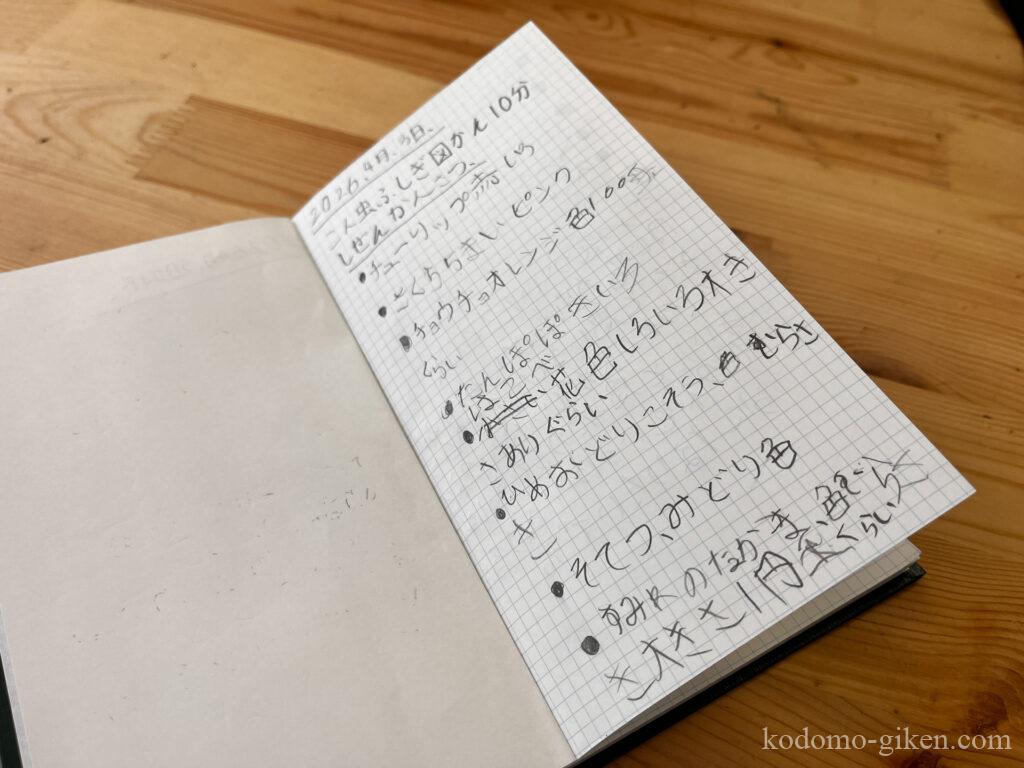 2026.4月.3日、
こん虫ふしぎ図かん10分
しぜんかんさつ、
•チューリップ赤いろ
•さくらちまいピンク
•チョウチョオレンジ色100玉
くらい
•たんぽぽきいろ
•ほっぺ花色しろいろ大き
さありぐらい
•ひめおどりこそう、色むらさ
き
•そてつ、みどり色
•すみれのなかま、色むら
さき大きさ1円玉くらい
kodomo-giken.com